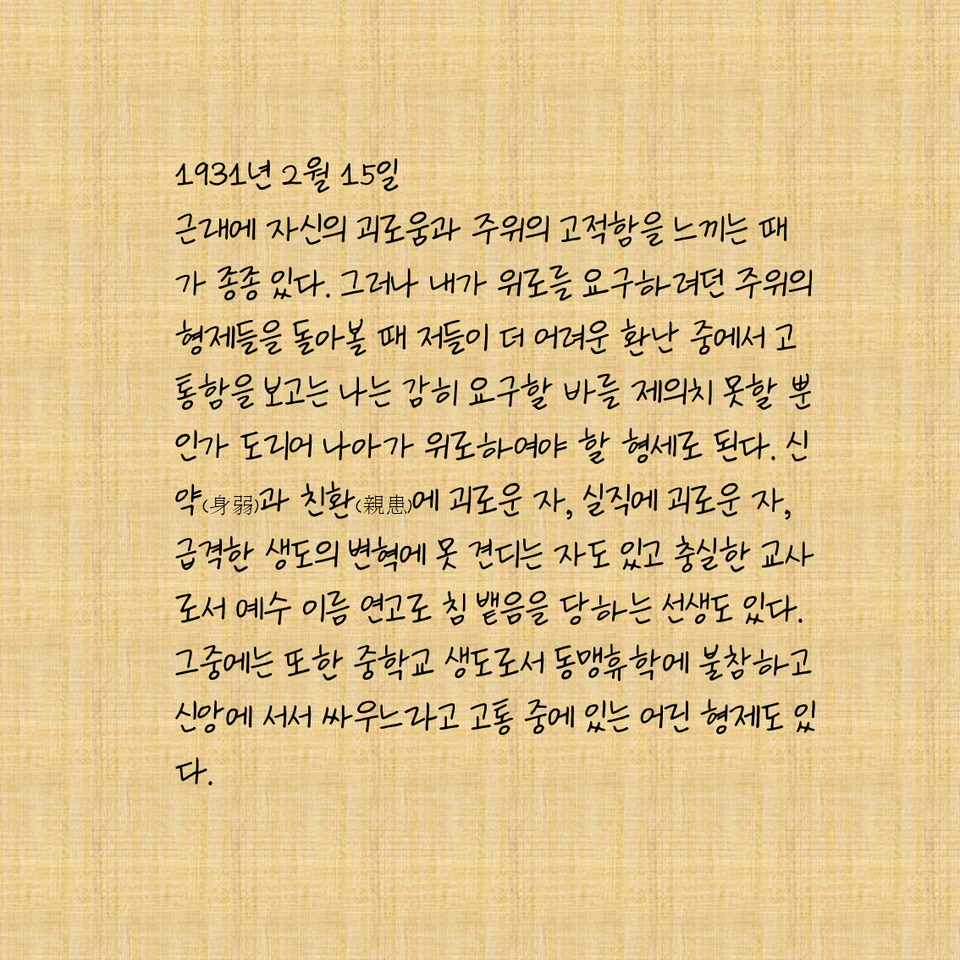 1931년 2월 15일
근래에 자신의 괴로움과 주위의 고적함을 느끼는 때
가 종종 있다. 그러나 내가 위로를 요구하려던 주위의
형제들을 돌아볼 때 저들이 더 어려운 환난 중에서 고
통함을 보고는 나는 감히 요구할 바를 제의치 못할 뿐
인가 도리어 나아가 위로하여야 할 형세로 된다. 신
약(身弱)과 친환(親患)에 괴로운 자, 실직에 괴로운 자,
급격한 생도의 변혁에 못 견디는 자도 있고 충실한 교사
로서 예수 이름 연고로 침 뱉음을 당하는 선생도 있다.
그중에는 또한 중학교 생도로서 동맹휴학에 불참하고
신앙에 서서 싸우느라고 고통 중에 있는 어린 형제도 있
다.